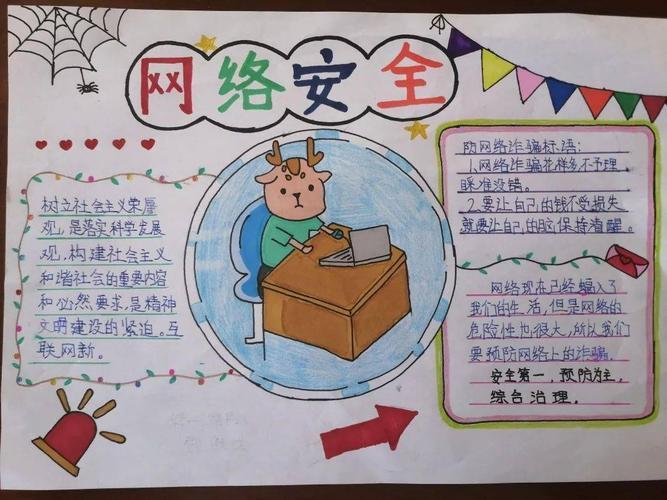 网络安全
树立社会主义荣辱
观,是落实科学发展
观,构建社会主义
和谐社会的重要内容
和必然要求,是精神
文明建设的紧迫。互
联网新。
防网络诈骗标语:
1.网络诈骗花样多不予理
睬准没错。
2.要让自己的钱不受损失
就要让自己的脑保持清醒。
网络现在已经融入了
我们的生活,但是网络的
危险性也很大,所以我们
要预防网络上的诈骗。
安全第一,预防为主,
综合治理。